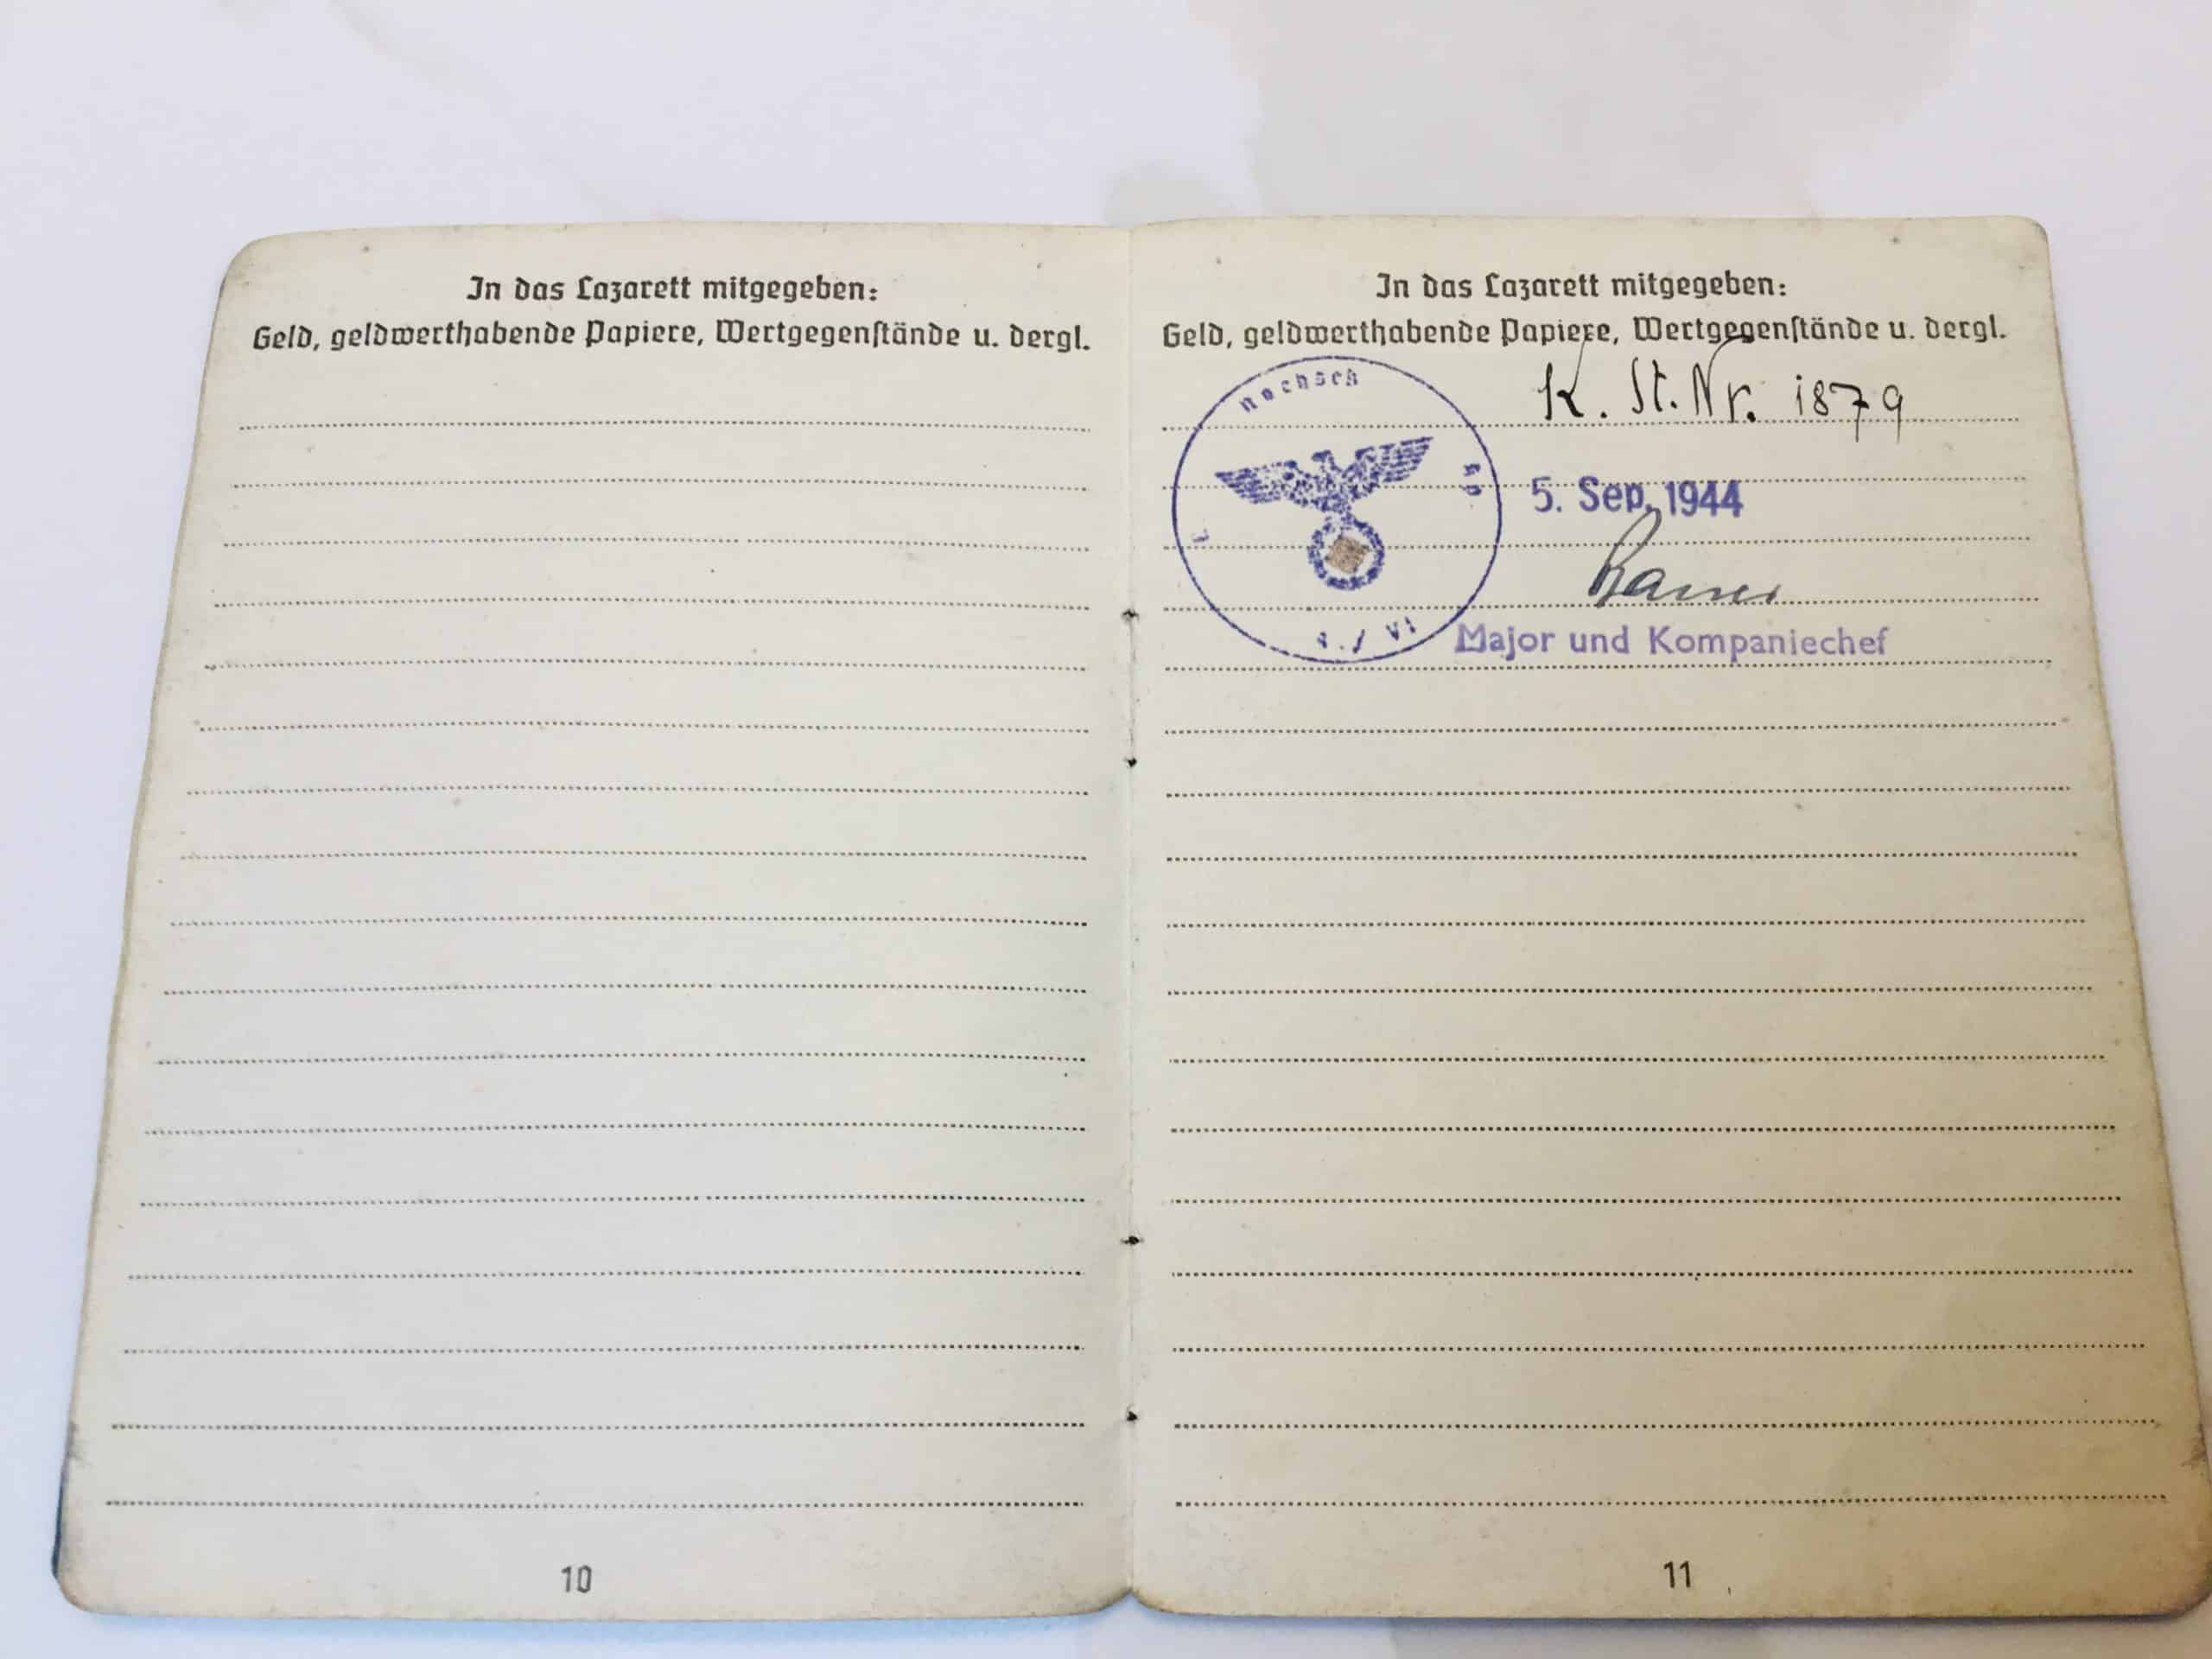 In das Lazarett mitgegeben:
Geld, geldwerthabende Papiere, Wertgegenſtände u. dergl.
10
In das Lazarett mitgegeben:
Geld, geldwerthabende Papiere, Wertgegenſtände u. dergl.
K. St. Nr. 1879
5. Sep. 1944
Major und Kompaniechef
11